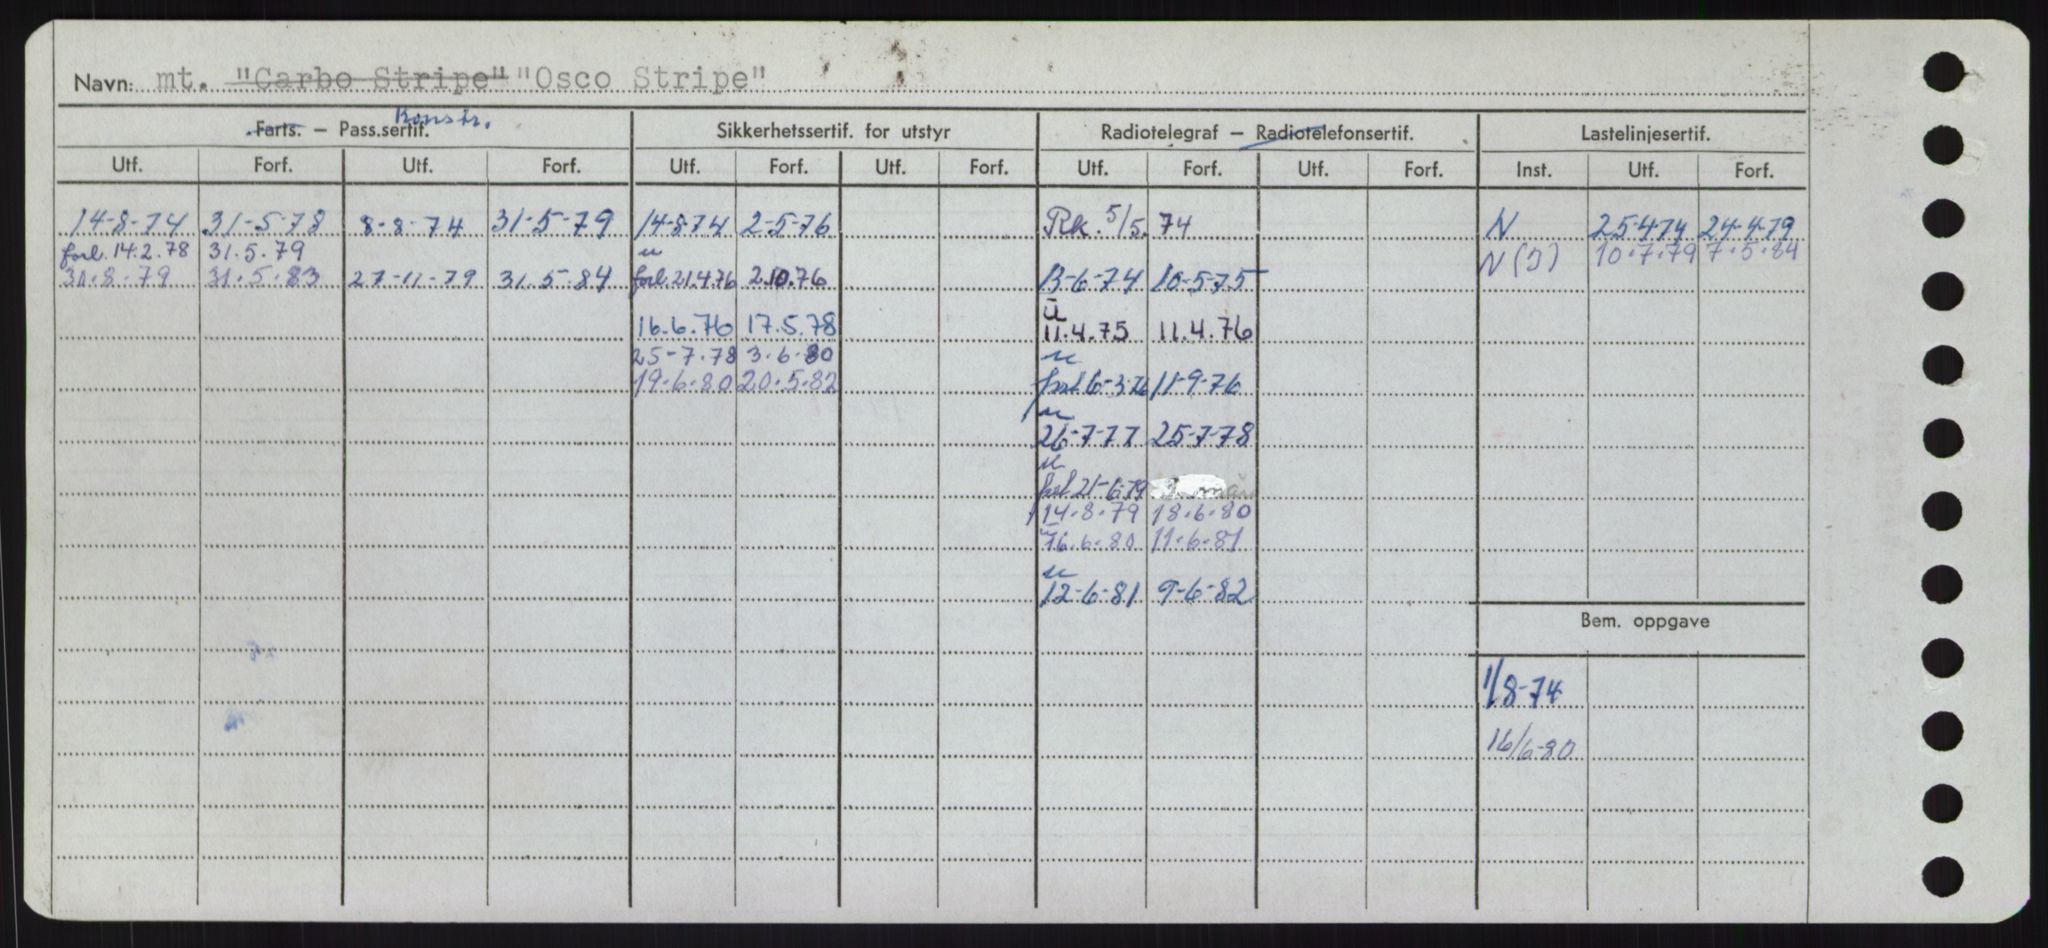 Navn: mt. "Carbo Stripe" "Osco Stripe"
Konstr.
Farts. – Pass.sertif. Sikkerhetssertif. for utstyr Radiotelegraf – Radiotelefonsertif. Lastelinjesertif.
Utf. Forf. Utf. Forf. Utf. Forf. Utf. Forf. Utf. Forf. Utf. Forf. Inst. Utf. Forf.
14-8-74 31-5-78 8-8-74 31-5-79 14-8-74 2-5-76 Rk. 5/5. 74 N 25-4-74 24-4-79
forl. 14.2.78 31.5.79 N (I) 10.7.79 7.5.84
30.8.79 31.5.83 27-11-79 31.5-84 forl. 21.4.76 2.10.76 13-6-74 10-5-75
16.6.76 17.5.78 11.4.75 11.4.76
25-7.78 3.6.80
19.6.80 20.5.82 forl. 6-3-76 11-9-76
26-7-77 25-7-78
forl 21-6-79
14.8.79 18.6.80
16.6.80 11.6.81
12-6-81 9-6-82
Bem. oppgave
1/8-74
16/6-80